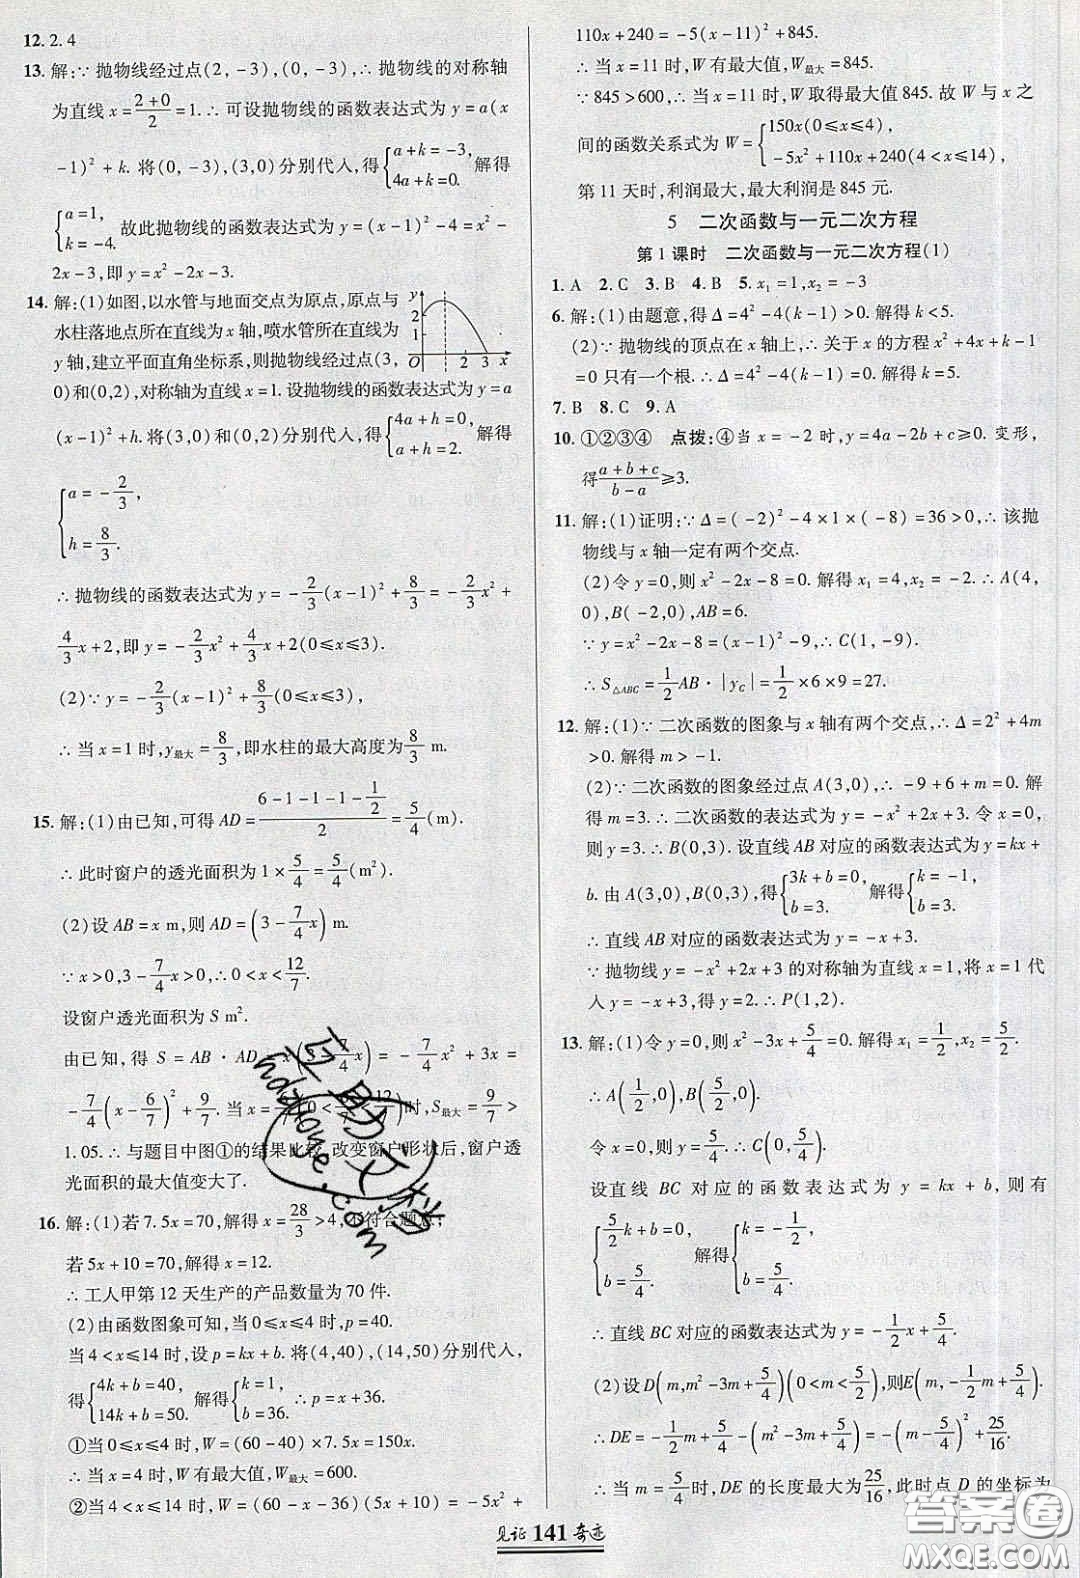 12. 2.4
13. 解:∵抛物线经过点(2,-3),(0,-3),∴抛物线的对称轴
为直线x=\frac{2+0}{2}=1.∴可设抛物线的函数表达式为y=a(x
-1)²+k.将(0,-3),(3,0)分别代入,得{a+k=-3, 4a+k=0.解得
{a=1, k=-4.故此抛物线的函数表达式为y=(x-1)²-4=x²-
2x-3,即y=x²-2x-3.
14. 解:(1)如图,以水管与地面交点为原点,原点与
水柱落地点所在直线为x轴,喷水管所在直线为
y轴,建立平面直角坐标系,则抛物线经过点(3,
0)和(0,2),对称轴为直线x=1.设抛物线的函数表达式为y=a
y
2
1
O
2 3 x
(x-1)²+h.将(3,0)和(0,2)分别代入,得{4a+h=0, a+h=2.解得
{a=-\frac{2}{3}, h=\frac{8}{3}.
∴抛物线的函数表达式为y=-\frac{2}{3}(x-1)²+\frac{8}{3}=-\frac{2}{3}x²+
\frac{4}{3}x+2,即y=-\frac{2}{3}x²+\frac{4}{3}x+2(0≤x≤3).
(2)∵y=-\frac{2}{3}(x-1)²+\frac{8}{3}(0≤x≤3),
∴当x=1时,y最大=\frac{8}{3},即水柱的最大高度为\frac{8}{3} m.
15. 解:(1)由已知,可得AD=\frac{6-1-1-1-\frac{1}{2}}{2}=\frac{5}{4}(m).
∴此时窗户的透光面积为1×\frac{5}{4}=\frac{5}{4}(m²).
(2)设AB=x m,则AD=(3-\frac{7}{4}x) m.
∵x>0,3-\frac{7}{4}x>0,∴0<x<\frac{12}{7}.
设窗户透光面积为S m².
由已知,得S=AB·AD=x(3-\frac{7}{4}x)=-\frac{7}{4}x²+3x=
-\frac{7}{4}(x-\frac{6}{7})²+\frac{9}{7}.当x=\frac{6}{7}(0<x<\frac{12}{7})时,S最大=\frac{9}{7}>
1.05.∴与题目中图①的结果比较,改变窗户形状后,窗户透
光面积的最大值变大了.
16. 解:(1)若7.5x=70,解得x=\frac{28}{3}>4,不符合题意;
若5x+10=70,解得x=12.
∴工人甲第12天生产的产品数量为70件.
(2)由函数图象可知,当0≤x≤4时,p=40.
当4<x≤14时,设p=kx+b.将(4,40),(14,50)分别代入,
得{4k+b=40, 14k+b=50.解得{k=1, b=36.∴p=x+36.
①当0≤x≤4时,W=(60-40)×7.5x=150x.
∴当x=4时,W有最大值,W最大=600.
②当4<x≤14时,W=(60-x-36)(5x+10)=-5x²+
110x+240=-5(x-11)²+845.
∴当x=11时,W有最大值,W最大=845.
∵845>600,∴当x=11时,W取得最大值845.故W与x之
间的函数关系式为W={150x(0≤x≤4), -5x²+110x+240(4<x≤14),
第11天时,利润最大,最大利润是845元.
5 二次函数与一元二次方程
第1课时 二次函数与一元二次方程(1)
1. A 2. C 3. B 4. B 5. x₁=1,x₂=-3
6. 解:(1)由题意,得Δ=4²-4(k-1)>0.解得k<5.
(2)∵抛物线的顶点在x轴上,∴关于x的方程x²+4x+k-1
=0只有一个根.∴Δ=4²-4(k-1)=0.解得k=5.
7. B 8. C 9. A
10. ①②③④ 点拨:④当x=-2时,y=4a-2b+c≥0.变形,
得\frac{a+b+c}{b-a}≥3.
11. 解:(1)证明:∵Δ=(-2)²-4×1×(-8)=36>0,∴该抛
物线与x轴一定有两个交点.
(2)令y=0,则x²-2x-8=0.解得x₁=4,x₂=-2.∴A(4,
0),B(-2,0),AB=6.
∵y=x²-2x-8=(x-1)²-9,∴C(1,-9).
∴S△ABC=\frac{1}{2}AB·|yC|=\frac{1}{2}×6×9=27.
12. 解:(1)∵二次函数的图象与x轴有两个交点,∴Δ=2²+4m
>0.解得m>-1.
(2)∵二次函数的图象经过点A(3,0),∴-9+6+m=0.解
得m=3.∴二次函数的表达式为y=-x²+2x+3.令x=0,
则y=3.∴B(0,3).设直线AB对应的函数表达式为y=kx+
b.由A(3,0),B(0,3),得{3k+b=0, b=3.解得{k=-1, b=3.
∴直线AB对应的函数表达式为y=-x+3.
∵抛物线y=-x²+2x+3的对称轴为直线x=1,将x=1代
入y=-x+3,得y=2.∴P(1,2).
13. 解:(1)令y=0,则x²-3x+\frac{5}{4}=0.解得x₁=\frac{1}{2},x₂=\frac{5}{2}.
∴A(\frac{1}{2},0),B(\frac{5}{2},0).
令x=0,则y=\frac{5}{4}.∴C(0,\frac{5}{4}).
设直线BC对应的函数表达式为y=kx+b,则有
{\frac{5}{2}k+b=0, b=\frac{5}{4}.解得{k=-\frac{1}{2}, b=\frac{5}{4}.
∴直线BC对应的函数表达式为y=-\frac{1}{2}x+\frac{5}{4}.
(2)设D(m,m²-3m+\frac{5}{4})(0<m<\frac{5}{2}),则E(m,-\frac{1}{2}m+\frac{5}{4}).
∴DE=-\frac{1}{2}m+\frac{5}{4}-(m²-3m+\frac{5}{4})=-(m-\frac{5}{4})²+\frac{25}{16}.
∴当m=\frac{5}{4}时,DE的长度最大为\frac{25}{16},此时点D的坐标为
见证 141 奇迹
答案圈
MXQE.COM